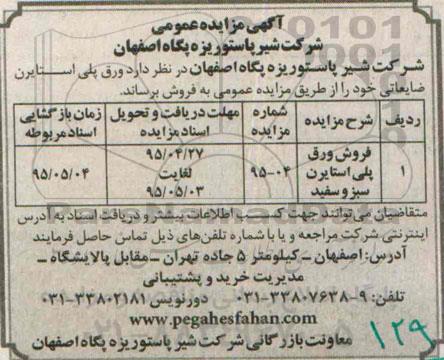 آگهی مزایده عمومی
شرکت شیر پاستوریزه پگاه اصفهان
شرکت شیر پاستوریزه پگاه اصفهان در نظر دارد ورق پلی استایرن
ضایعاتی خود را از طریق مزایده عمومی به فروش برساند.
ردیف شرح مزایده شماره مزایده مهلت دریافت و تحویل اسناد مزایده زمان بازگشایی اسناد مربوطه
۱ فروش ورق پلی استایرن سبز و سفید ۹۵-۰۴ ۹۵/۰۴/۲۷ لغایت ۹۵/۰۵/۰۳ ۹۵/۰۵/۰۴
متقاضیان می توانند جهت کسب اطلاعات بیشتر و دریافت اسناد به آدرس
اینترنتی شرکت مراجعه و یا با شماره تلفن های ذیل تماس حاصل فرمایند
آدرس: اصفهان - کیلومتر ۵ جاده تهران - مقابل پالایشگاه -
مدیریت خرید و پشتیبانی
تلفن: ۹-۳۳۸۰۷۶۳۸-۰۳۱ دورنویس ۳۳۸۰۲۱۸۱-۰۳۱
www.pegahesfahan.com
معاونت بازرگانی شرکت شیر پاستوریزه پگاه اصفهان
۱۲۹